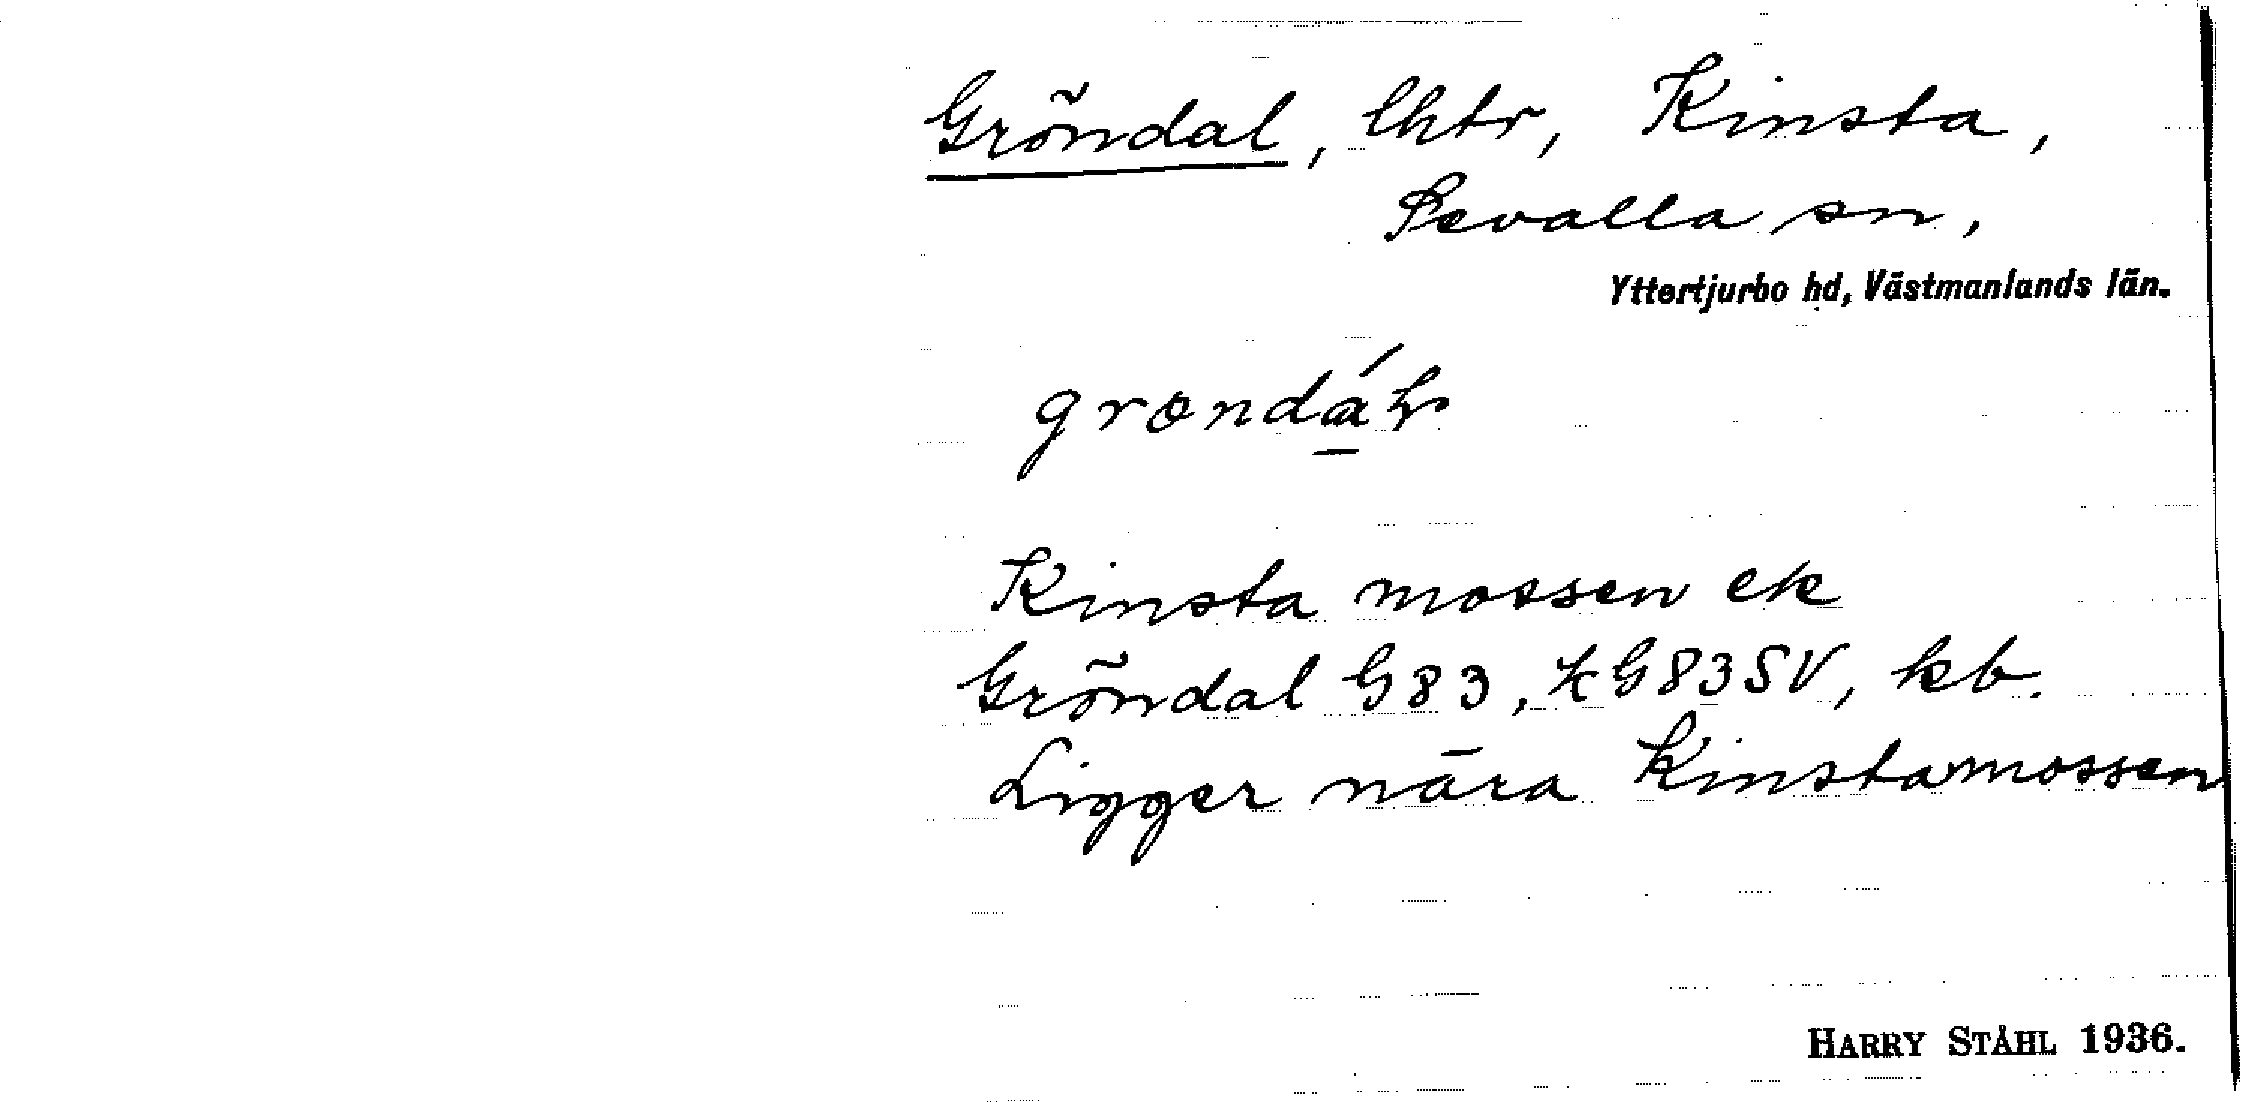 Gröndal, lhtr, Kinsta,
Sevalla sn,
Yttertjurbo hd, Västmanlands län.
Kinsta mossen ek
Gröndal G83, KG83SV, kb.
Ligger nära Kinstamossen
HARRY STÅHL 1936.